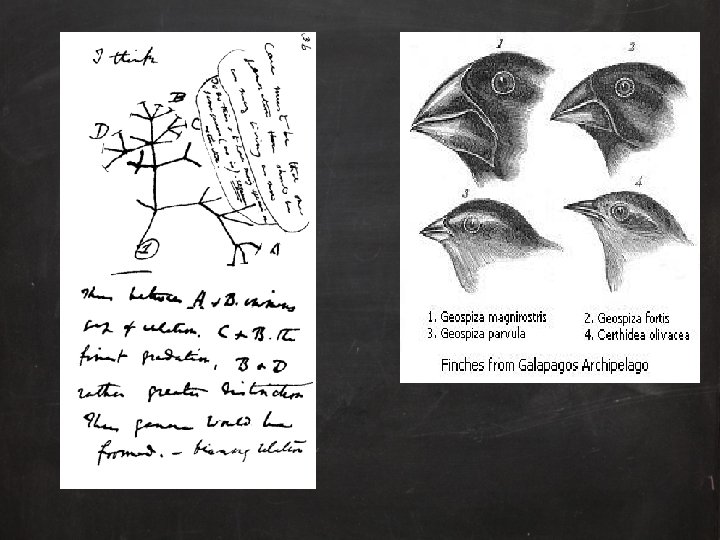 36
I think
Case must be that one
generation then should be
as many living as now
To do this & to have many species in
same genus (as is) requires
extinction
B
C
D
A
1
Thus between A & B. immense
gap of relation. C & B. The
finest gradation, B & D
rather greater distinction
Thus genera would be
formed. – bearing relation
1
2
3
4
1. Geospiza magnirostris
2. Geospiza fortis
3. Geospiza parvula
4. Certhidea olivacea
Finches from Galapagos Archipelago